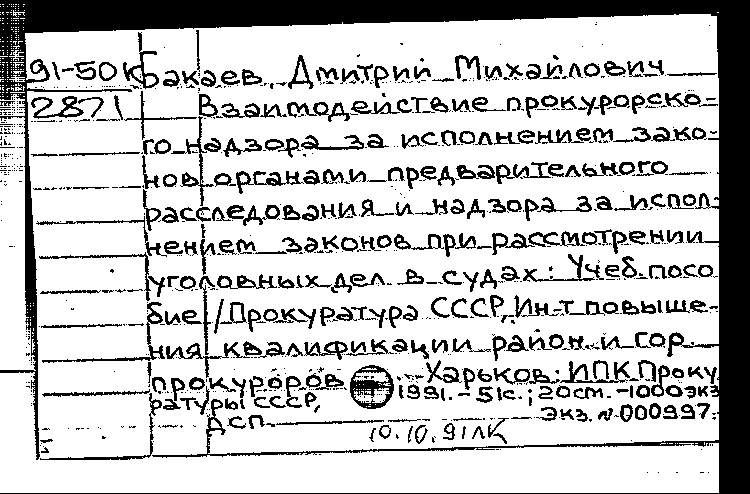 91-50К Бакаев, Дмитрий Михайлович
2871 Взаимодействие прокурорско-
го надзора за исполнением зако-
нов органами предварительного
расследования и надзора за испол-
нением законов при рассмотрении
уголовных дел в судах: Учеб. посо
бие / Прокуратура СССР, Ин-т повыше-
ния квалификации район. и гор.
прокуроров. - Харьков: ИПК Проку
ратуры СССР, 1991. - 51с.; 20см. - 1000экз
ДСП. Экз. № 000997.
10.10.91 ЛК